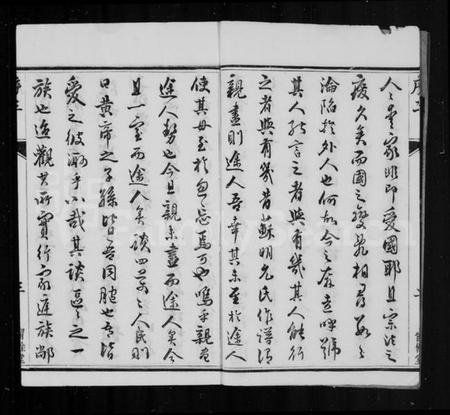 人愛家非即愛國耶且宗法之
廢久矣而國之變亂相尋
淪陷於外人也何如今之奔走呼號
其人能言之者與有幾其人能行
之者與有幾昔蘇明允氏作譜謂
親盡則途人吾幸其未至於途人
使其毋至於忽忘焉可也嗚乎親盡
途人勢也今且親未盡而途人矣今
且一室而途人矣談四萬萬人民則
曰黃帝之子孫皆吾同胞也吾皆
愛之彼酥乎小哉其談區區之一
族也迨觀其所實行家庭族鄰